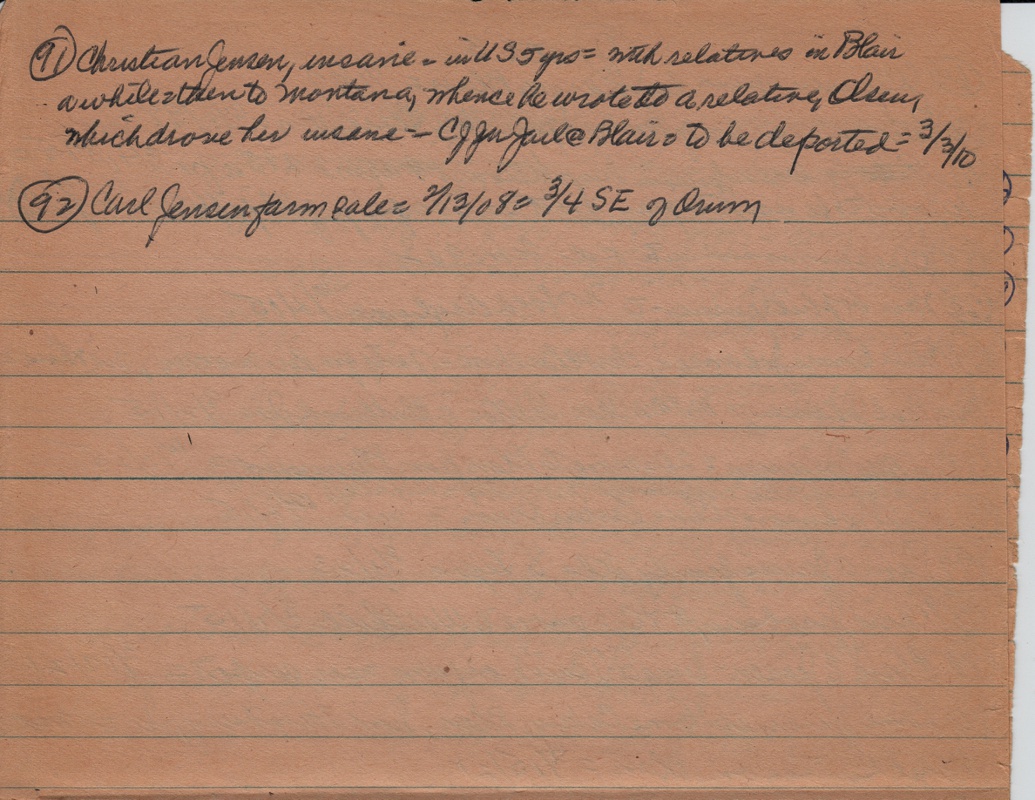 91) Christian Jensen, insane - in US 5 yrs = with relatives in Blair
awhile = then to Montana, whence he wrote to a relative, Olsen,
which drove her insane = CJ in Jail @ Blair = to be deported = 3/3/10
92) Carl Jensen farm sale = 2/13/08 = 3/4 SE of Orum